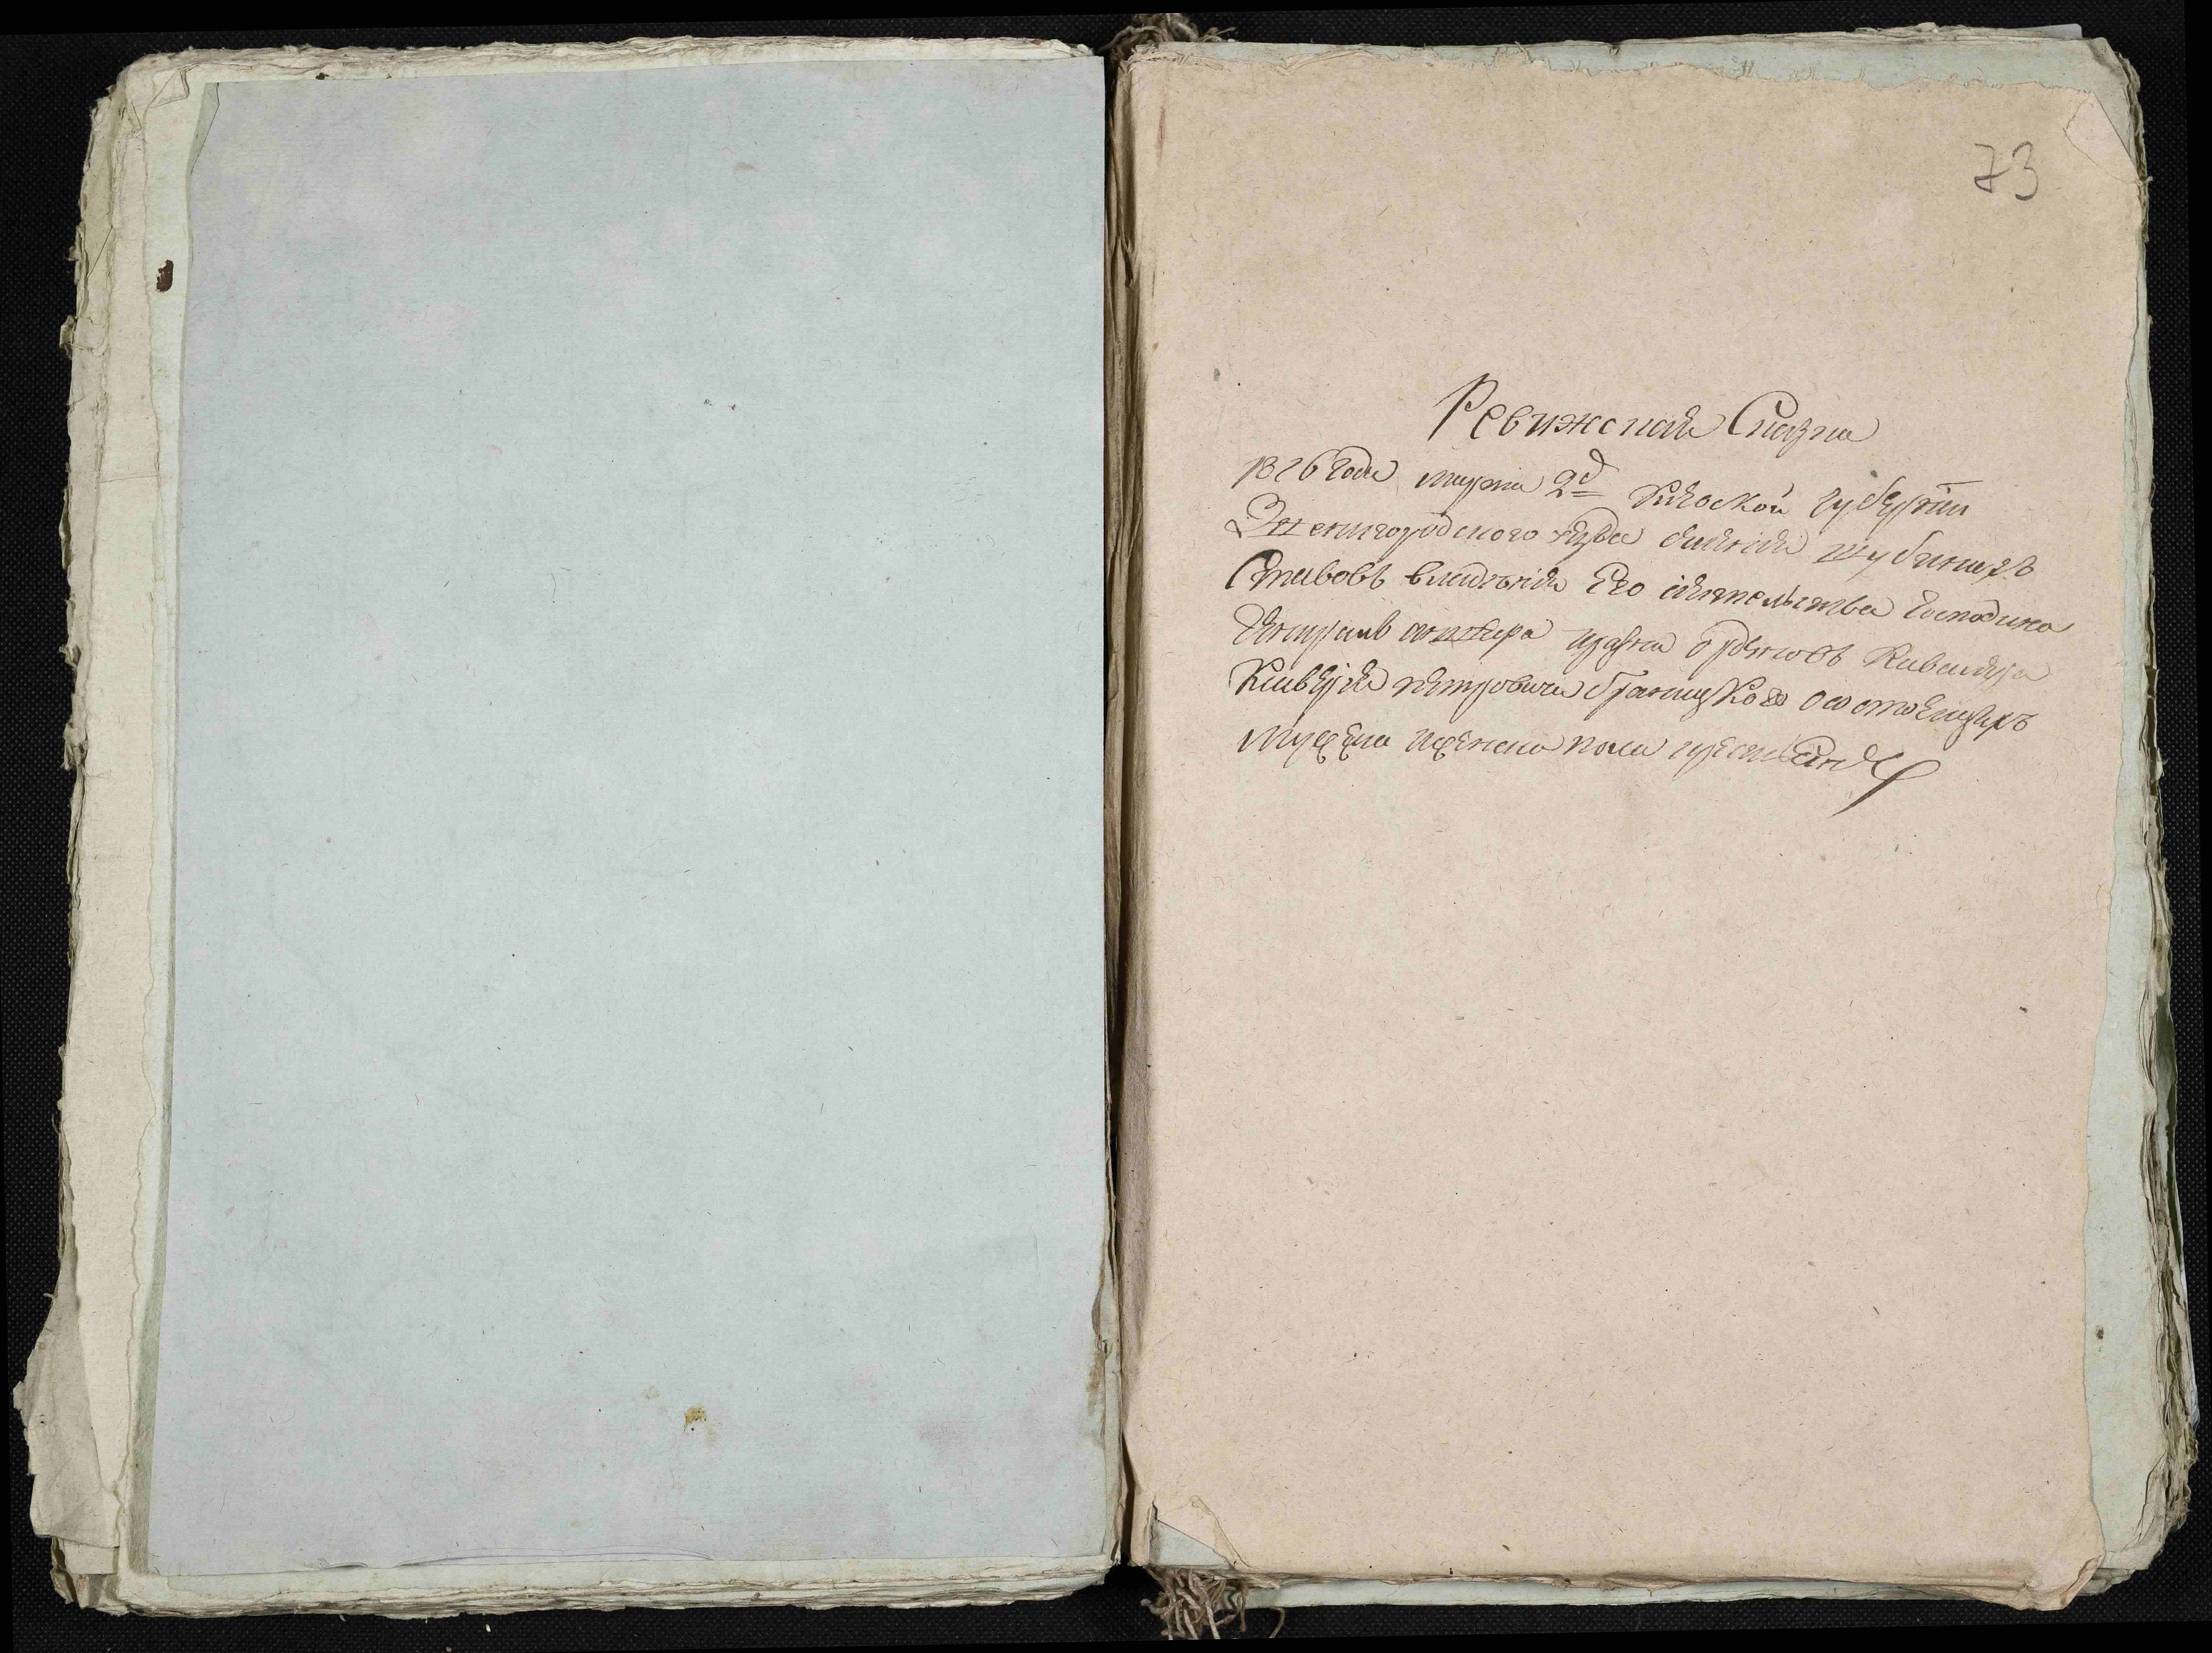 73
Ревижская Сказка
1816 Года марта 2д Киевской губернии
Звенигородского уезда селения Шубиныхъ
Ставовъ владения Его сиятельства Господина
Генерала инфантера Графа орденовъ Кавалера
Ксаверия петровича браницкого о состоящихъ
мужеска и женска пола крестьян